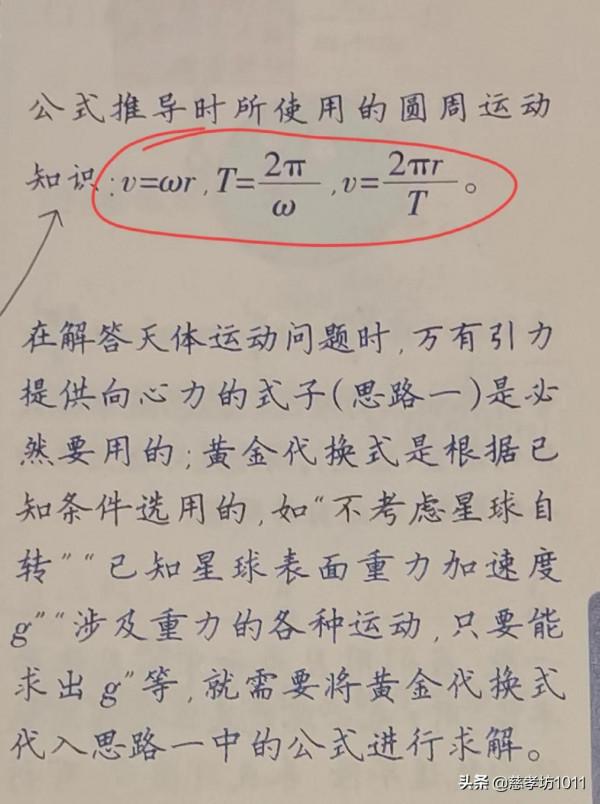 公式推导时所使用的圆周运动
知识:v=ωr,T=2π/ω,v=2πr/T。
在解答天体运动问题时,万有引力
提供向心力的式子(思路一)是必
然要用的;黄金代换式是根据已
知条件选用的,如“不考虑星球自
转”“已知星球表面重力加速度
g”“涉及重力的各种运动,只要能
求出g”等,就需要将黄金代换式
代入思路一中的公式进行求解。
头条 @慈孝坊1011